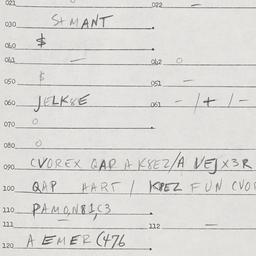 021 022 –
030 S+MANT
040 $
041 – 042 O
050 $ 051 –
060 JELK8E 061 – / + / –
070 O
080 O
090 CVOREX QAP A K8EZ/A VEJX3R
100 QAP HART / K8EZ FUN CVO
110 PAMON81C3
111 – 112 –
120 A EMER (476